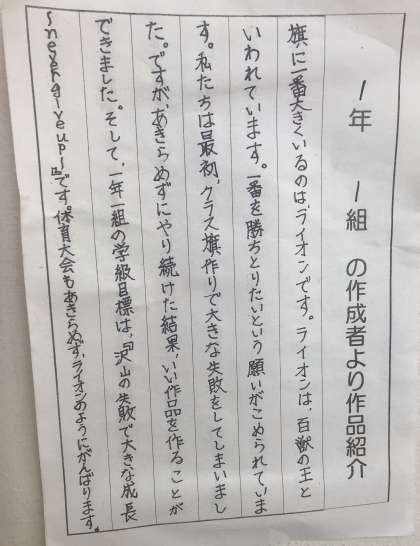 1年 1組 の作成者より作品紹介
旗に一番大きくいるのは、ライオンです。ライオンは、百獣の王と
いわれています。一番を勝ちとりたいという願いがこめられていま
す。私たちは最初、クラス旗作りで大きな失敗をしてしまいまし
た。ですが、あきらめずにやり続けた結果、いい作品を作ることが
できました。そして、一年一組の学級目標は、『沢山の失敗で大きな成長
〜never give up〜』です。体育大会もあきらめず、ライオンのようにがんばります。